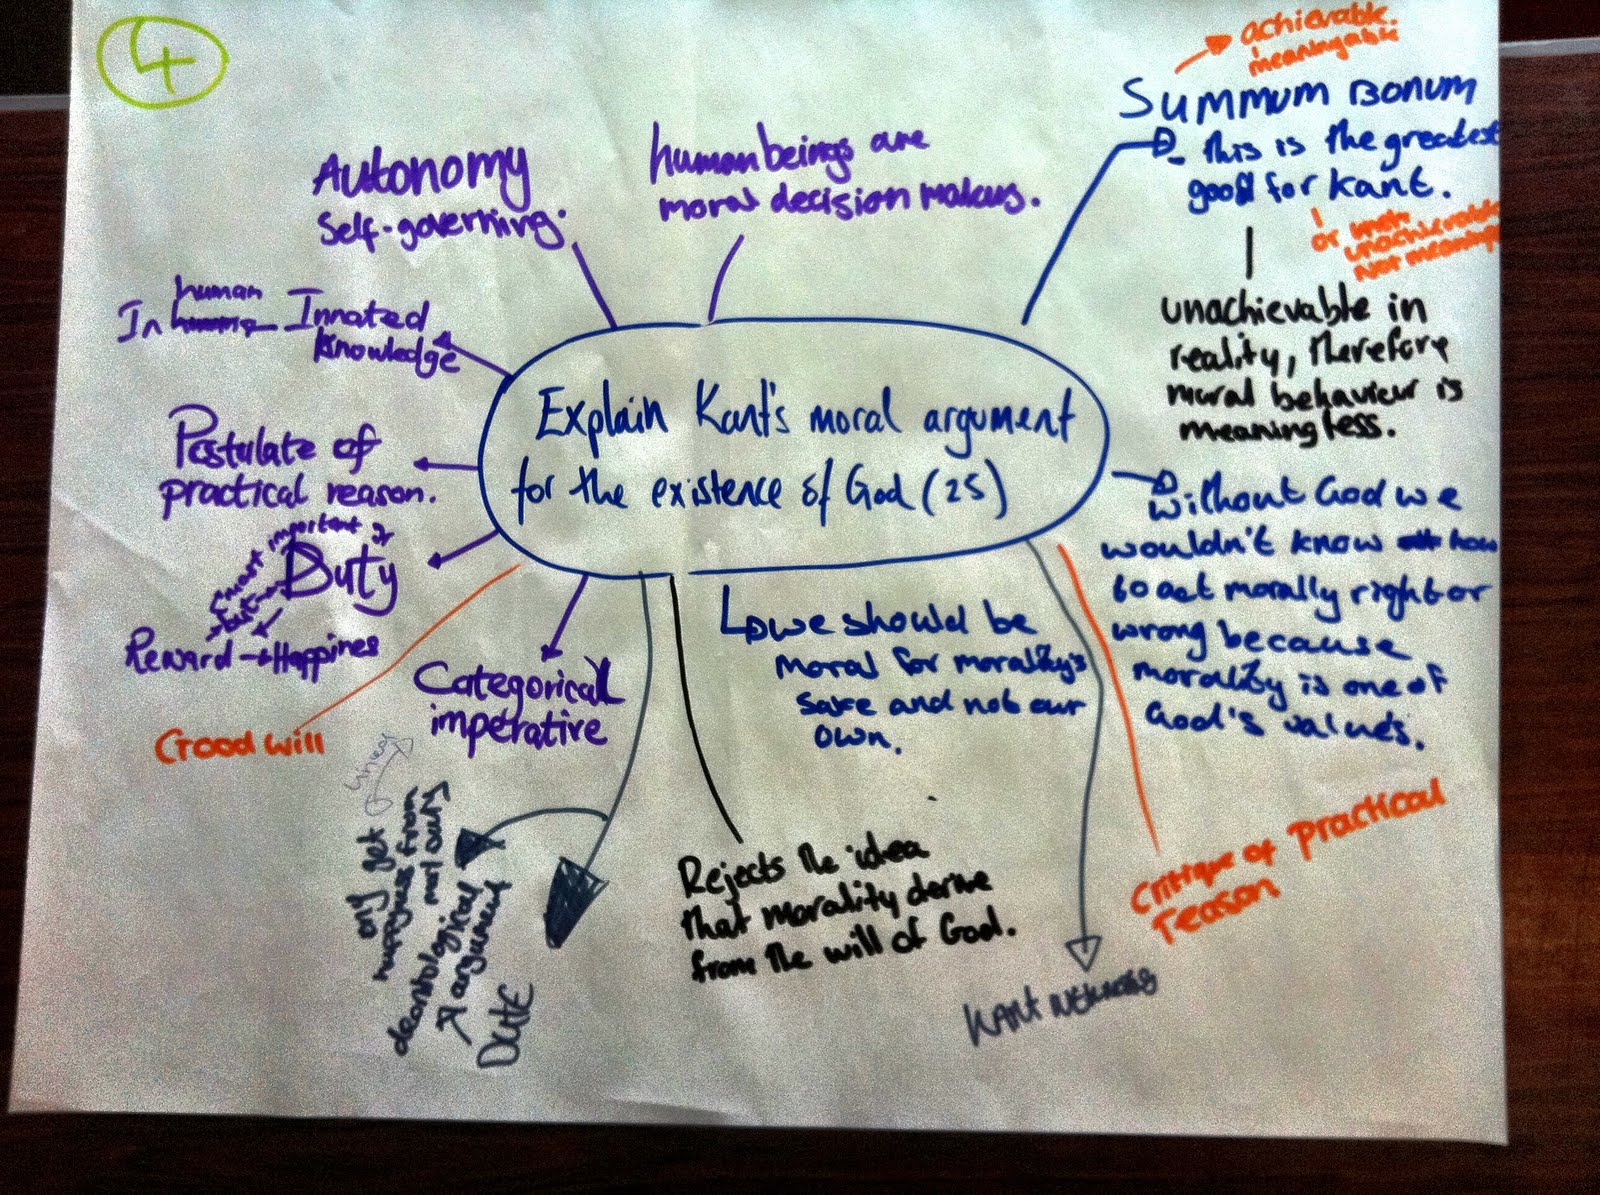 4
Autonomy
Self-governing.
human beings are
moral decision makers.
achievable.
meaningable
Summum Bonum
- this is the greatest
good for Kant.
or
unachievable
Not meaning
unachievable in
reality, therefore
moral behaviour is
meaningless.
human
In
Innated
Knowledge
Postulate of
practical reason.
most important
Duty
but
Reward → Happines
Good will
Categorical
imperative
Explain Kant's moral argument
for the existence of God (25)
Without God we
wouldn't know how
to act morally right or
wrong because
morality is one of
God's values.
we should be
moral for morality's
sake and not our
own.
Critique of Practical
reason
Rejects the idea
that morality derive
from the will of God.
KANT
deontological
argument
DUTE
only get
happyness from